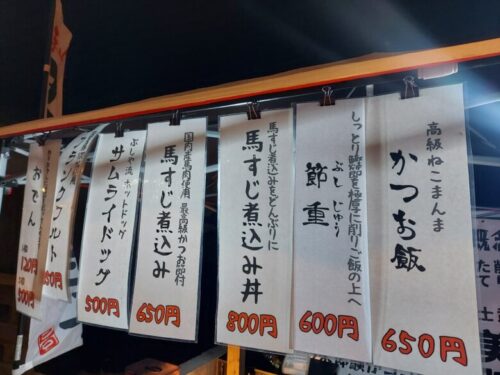 高級ねこまんま
かつお飯
650円
しっとり鰹節を極厚に削りご飯の上へ
ぶし じゅう
節重
600円
馬すじ煮込みをどんぶりに
馬すじ煮込み丼
800円
国内産馬肉使用 最高級かつお節付
馬すじ煮込み
650円
ぶしや流ホットドッグ
サムライドッグ
500円
フランクフルト
おでん
120円
500円